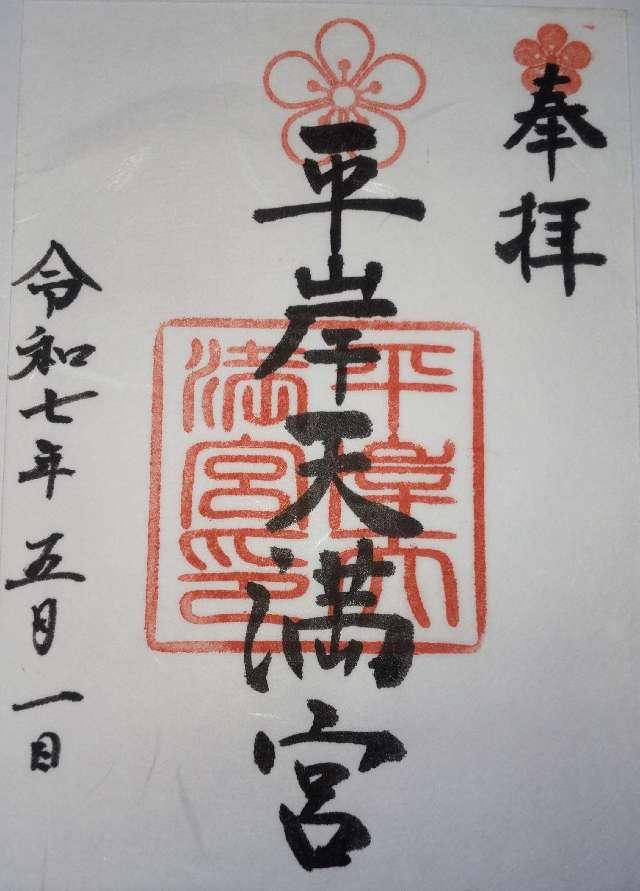 奉拝
平岸天満宮
平岸天満宮印
令和七年五月一日